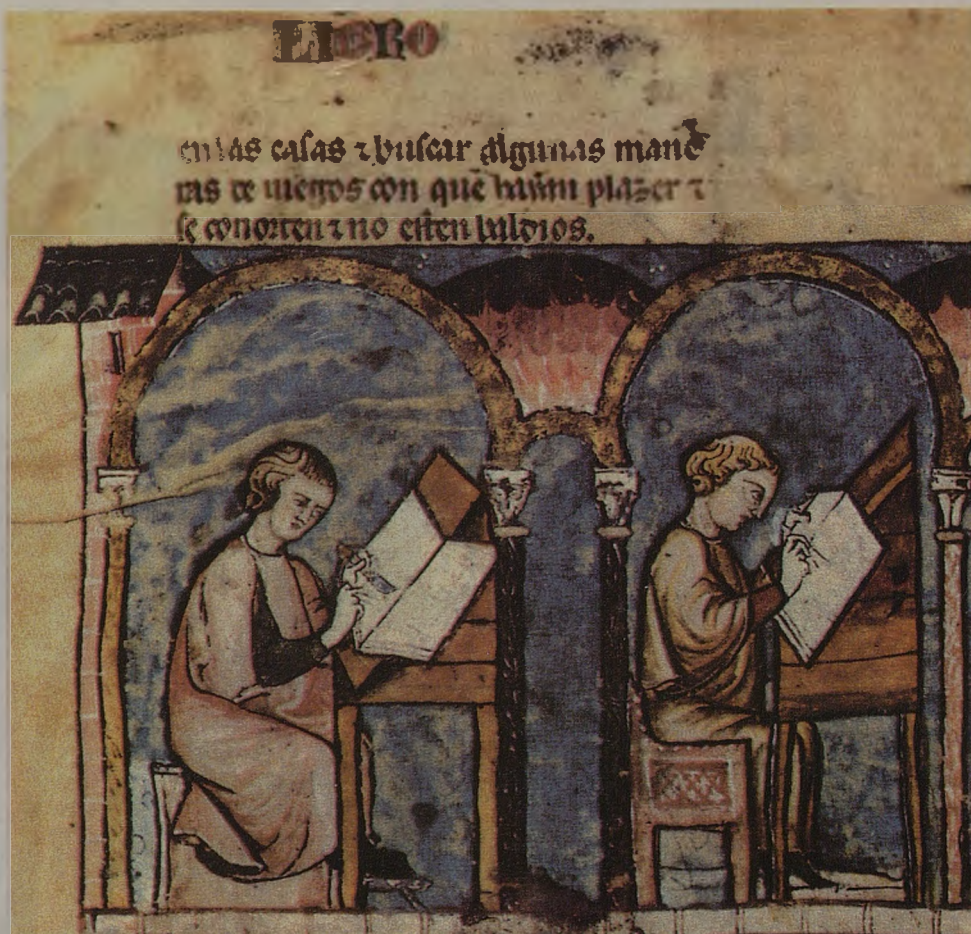 LIBRO
en las caſas ⁊ buſcar algunas mane
ras de iuegos con que hayan plazer ⁊
ſe conorten ⁊ no eſten baldios.